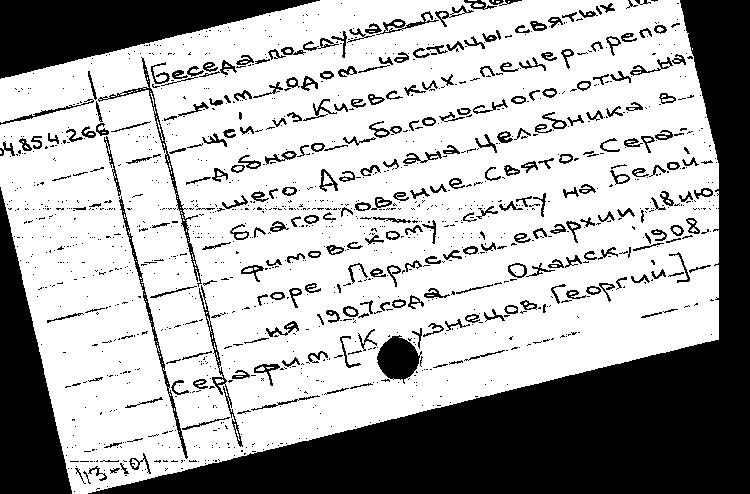 Беседа по случаю
ным ходом частицы святых
щей из Киевских пещер препо-
34.85.4.266
добного и богоносного отца на-
шего Дамиана Целебника в
благословение Свято-Сера-
фимовскому скиту на Белой
горе, Пермской епархии, 18 ию-
ня 1907 года. Оханск, 1908
Серафим [Кузнецов, Георгий]
113-101